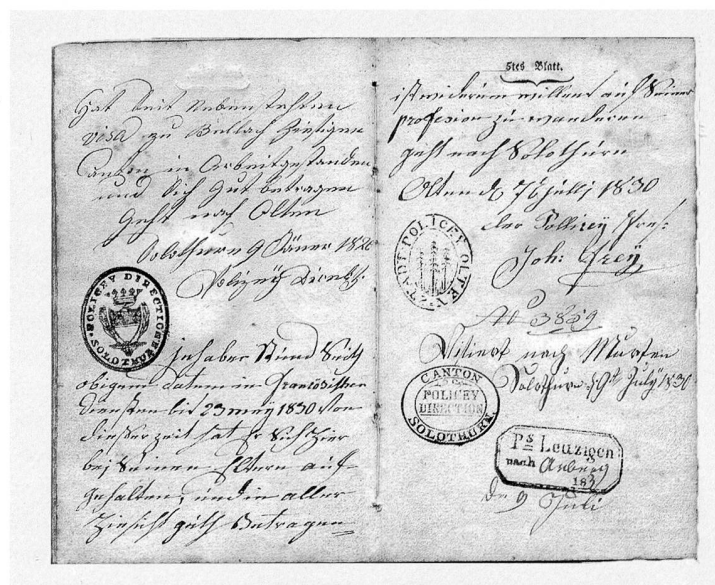 Hat seit nebenstehten
visa zu Bellach hiesigen
Canton in Arbeit gestanden
und sich gut betragen
geht nach Olten
Solothurn 9 Jäner 1826
Polizey Direkt:
POLICEY DIRECTION SOLOTHURN
Inhaber stund seith
obigem datum in französischen
diensten bis 23 mey 1830 von
dieser zeit hat er sich hier
bei seinen Eltern auf-
gehalten, und in aller
hinsicht guth betragen
5tes Blatt.
ist widerum willens auf seiner
profesion zu wanderen
geht nach Solothurn
Olten d 7t july 1830
der Pollizey Pres:
Joh: Frey
STADT POLICEY OLTEN
No 3859
Visiert nach Murten
Solothurn d 9t July 1830
CANTON
POLICEY
DIRECTION
SOLOTHURN
Ps Leuzigen
nach Arberg
183
de 9 Juli